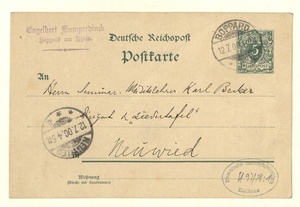 Engelbert Humperdinck
Boppard am Rhein
Deutsche Reichspost
Postkarte
BOPPARD
12.7.00
5
An
Herrn Seminar-Musiklehrer Karl Becker
Dirigent der „Liedertafel"
Neuwied
NEUWIED
12.7.00
Wohnung